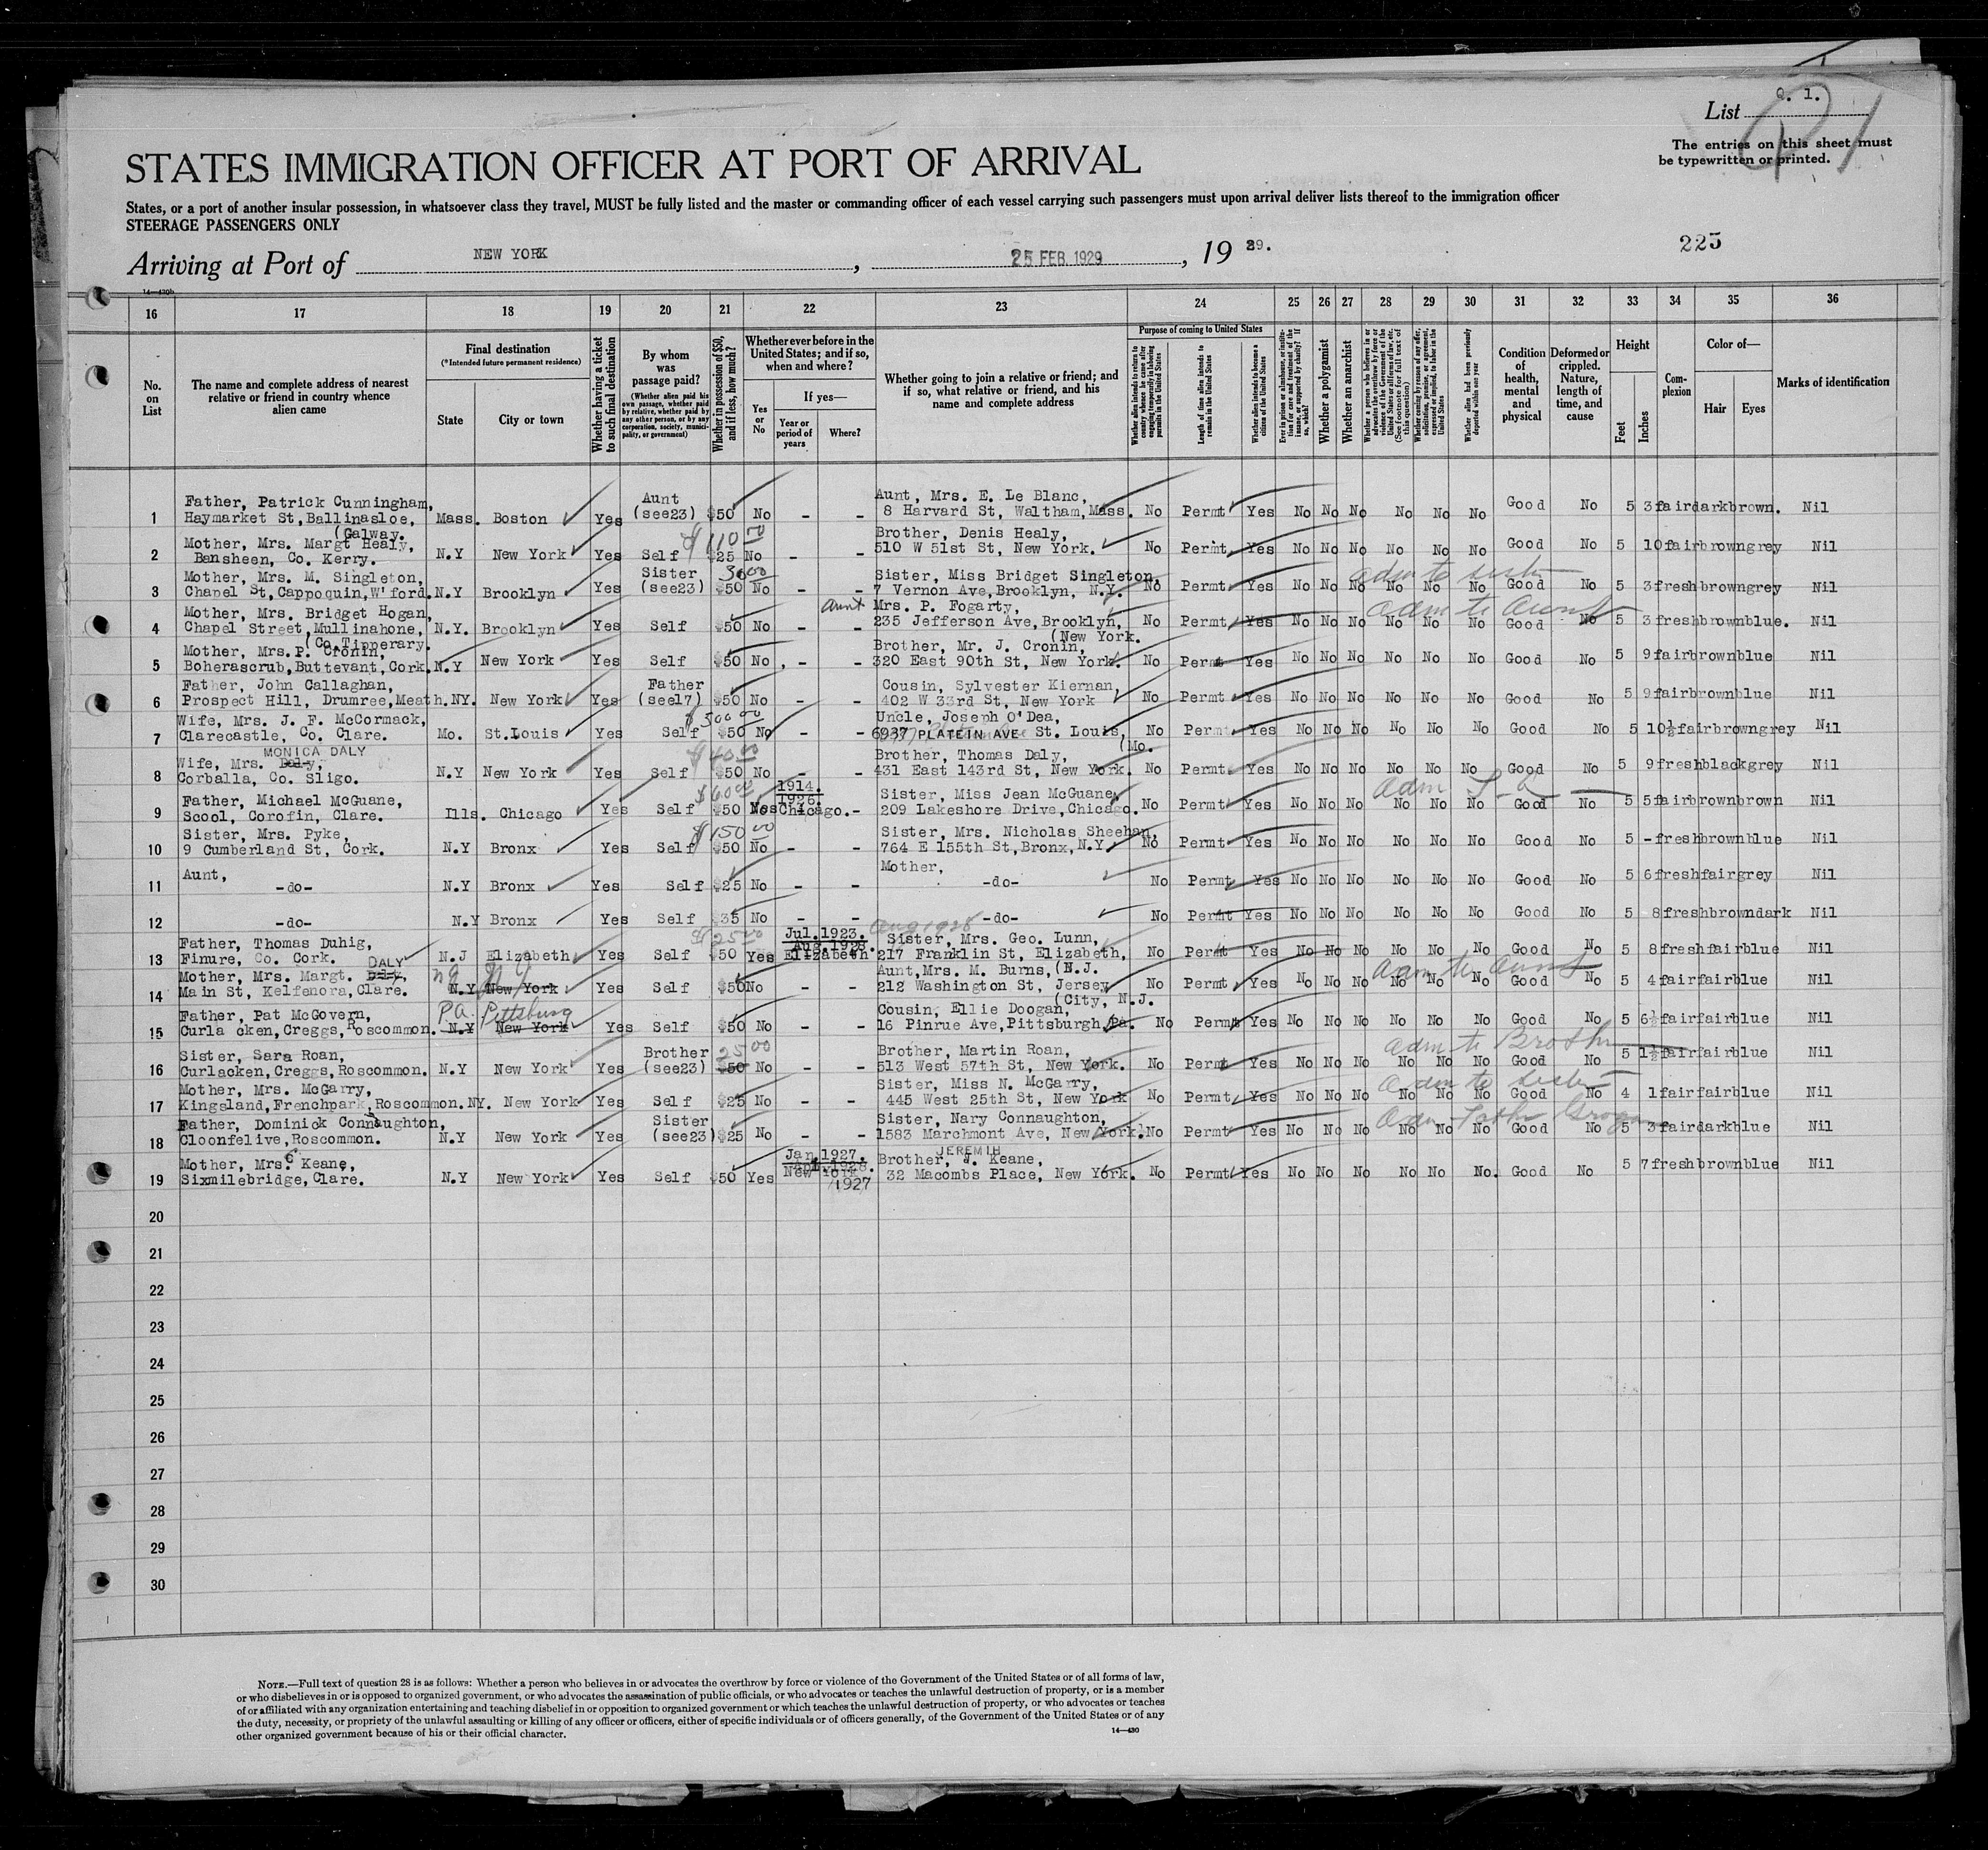 List Q. 1.
The entries on this sheet must
be typewritten or printed.
STATES IMMIGRATION OFFICER AT PORT OF ARRIVAL
States, or a port of another insular possession, in whatsoever class they travel, MUST be fully listed and the master or commanding officer of each vessel carrying such passengers must upon arrival deliver lists thereof to the immigration officer
STEERAGE PASSENGERS ONLY
225
Arriving at Port of NEW YORK, 25 FEB 1929, 19 29.
14—430b
16 17 18 19 20 21 22 23 24 25 26 27 28 29 30 31 32 33 34 35 36
No. on List
The name and complete address of nearest relative or friend in country whence alien came
Final destination
(*Intended future permanent residence)
State City or town
Whether having a ticket to such final destination
By whom was passage paid?
(Whether alien paid his own passage, whether paid by relative, whether paid by any other person, or by any corporation, society, municipality, or government)
Whether in possession of $50, and if less, how much?
Whether ever before in the United States; and if so, when and where?
Yes or No
If yes—
Year or period of years Where?
Whether going to join a relative or friend; and if so, what relative or friend, and his name and complete address
Purpose of coming to United States
Whether alien intends to return to country whence he came after engaging temporarily in laboring pursuits in the United States
Length of time alien intends to remain in the United States
Whether alien intends to become a citizen of the United States
Ever in prison or almshouse, or institution for care and treatment of the insane, or supported by charity? If so, which?
Whether a polygamist
Whether an anarchist
Whether a person who believes in or advocates the overthrow by force or violence of the Government of the United States or all forms of law, etc. (See footnote for full text of this question)
Whether coming by reason of any offer, solicitation, promise, or agreement, expressed or implied, to labor in the United States
Whether alien had been previously deported within one year
Condition of health, mental and physical
Deformed or crippled. Nature, length of time, and cause
Height
Feet Inches
Complexion
Color of—
Hair Eyes
Marks of identification
Father, Patrick Cunningham, Aunt Aunt, Mrs. E. Le Blanc,
1 Haymarket St, Ballinasloe, Mass. Boston Yes (see23) $50 No - - 8 Harvard St, Waltham, Mass. No Permt Yes No No No No No No Good No 5 3 fair dark brown. Nil
(Galway.
Mother, Mrs. Margt Healy, $110 00 Brother, Denis Healy,
2 Bansheen, Co. Kerry. N.Y New York Yes Self $25 No - - 510 W 51st St, New York. No Permt Yes No No No No No No Good No 5 10 fair brown grey Nil
Mother, Mrs. M. Singleton, Sister 30 00 Sister, Miss Bridget Singleton, adm to sister
3 Chapel St, Cappoquin, W'ford. N.Y Brooklyn Yes (see23) $50 No - - 7 Vernon Ave, Brooklyn, N.Y. No Permt Yes No No No No No No Good No 5 3 fresh brown grey Nil
Mother, Mrs. Bridget Hogan, aunt Mrs. P. Fogarty, adm to Aunt
4 Chapel Street, Mullinahone, N.Y. Brooklyn Yes Self $50 No - - 235 Jefferson Ave, Brooklyn, No Permt Yes No No No No No No Good No 5 3 fresh brown blue. Nil
(Co. Tipperary. (New York.
Mother, Mrs. P. Cronin, Brother, Mr. J. Cronin,
5 Boherascrub, Buttevant, Cork. N.Y New York Yes Self $50 No - - 320 East 90th St, New York. No Permt Yes No No No No No No Good No 5 9 fair brown blue Nil
Father, John Callaghan, Father Cousin, Sylvester Kiernan,
6 Prospect Hill, Drumree, Meath. NY. New York Yes (see17) $50 No - - 402 W 33rd St, New York No Permt Yes No No No No No No Good No 5 9 fair brown blue Nil
Wife, Mrs. J. F. McCormack, $500 00 Uncle, Joseph O'Dea,
7 Clarecastle, Co. Clare. Mo. St.Louis Yes Self $50 No - - 6937 PLATEIN AVE St. Louis, No Permt Yes No No No No No No Good No 5 10½ fair brown grey Nil
(Mo.
MONICA DALY
Wife, Mrs. Daly, $40 00 Brother, Thomas Daly,
8 Corballa, Co. Sligo. N.Y New York Yes Self $50 No - - 431 East 143rd St, New York. No Permt Yes No No No No No No Good No 5 9 fresh black grey Nil
Father, Michael McGuane, $60 00 1914. 1926. Sister, Miss Jean McGuane,
9 Scool, Corofin, Clare. Ills. Chicago Yes Self $50 Yes Chicago. - 209 Lakeshore Drive, Chicago. No Permt Yes No No No No No No Good No 5 5 fair brown brown Nil
Sister, Mrs. Pyke, $150 00 Sister, Mrs. Nicholas Sheehan,
10 9 Cumberland St, Cork. N.Y Bronx Yes Self $50 No - - 764 E 155th St, Bronx, N.Y. No Permt Yes No No No No No No Good No 5 - fresh brown blue Nil
Aunt, Mother,
11 -do- N.Y Bronx Yes Self $25 No - - -do- No Permt Yes No No No No No No Good No 5 6 fresh fair grey Nil
12 -do- N.Y Bronx Yes Self $35 No - - -do- No Permt Yes No No No No No No Good No 5 8 fresh brown dark Nil
Aug 1928
Father, Thomas Duhig, $125 00 Jul.1923. Aug.1928. Sister, Mrs. Geo. Lunn,
13 Finure, Co. Cork. N.J Elizabeth Yes Self $50 Yes Elizabeth 217 Franklin St, Elizabeth, No Permt Yes No No No No No No Good No 5 8 fresh fair blue Nil
(N.J.
Mother, Mrs. Margt. Daly, DALY Aunt, Mrs. M. Burns, adm to aunt
14 Main St, Kelfenora, Clare. N.Y New York Yes Self $50 No - - 212 Washington St, Jersey No Permt Yes No No No No No No Good No 5 4 fair fair blue Nil
(City, N.J.
Father, Pat McGovern, P.a. Pittsburg Cousin, Ellie Doogan,
15 Curla cken, Creggs, Roscommon. N.Y New York Yes Self $50 No - - 16 Pinrue Ave, Pittsburgh, Pa. No Permt Yes No No No No No No Good No 5 6½ fair fair blue Nil
Sister, Sara Roan, Brother 25 00 Brother, Martin Roan, adm to Brother
16 Curlacken, Creggs, Roscommon. N.Y New York Yes (see23) $50 No - - 513 West 57th St, New York. No Permt Yes No No No No No No Good No 5 1½ fair fair blue Nil
Mother, Mrs. McGarry, Sister, Miss N. McGarry, adm to sister
17 Kingsland, Frenchpark, Roscommon. NY. New York Yes Self $25 No - - 445 West 25th St, New York No Permt Yes No No No No No No Good No 4 1 fair fair blue Nil
Father, Dominick Connaughton, Sister Sister, Nary Connaughton,
18 Cloonfelive, Roscommon. N.Y New York Yes (see23) $25 No - - 1583 Marchmont Ave, New York. No Permt Yes No No No No No No Good No 5 3 fair dark blue Nil
Mother, Mrs. C Keane, Jan.1927. JEREMIH Brother, J. Keane,
19 Sixmilebridge, Clare. N.Y New York Yes Self $50 Yes New York 1927 32 Macombs Place, New York. No Permt Yes No No No No No No. Good No 5 7 fresh brown blue Nil
20
21
22
23
24
25
26
27
28
29
30
NOTE.—Full text of question 28 is as follows: Whether a person who believes in or advocates the overthrow by force or violence of the Government of the United States or of all forms of law,
or who disbelieves in or is opposed to organized government, or who advocates the assassination of public officials, or who advocates or teaches the unlawful destruction of property, or is a member
of or affiliated with any organization entertaining and teaching disbelief in or opposition to organized government or which teaches the unlawful destruction of property, or who advocates or teaches
the duty, necessity, or propriety of the unlawful assaulting or killing of any officer or officers, either of specific individuals or of officers generally, of the Government of the United States or of any
other organized government because of his or their official character.
14—430